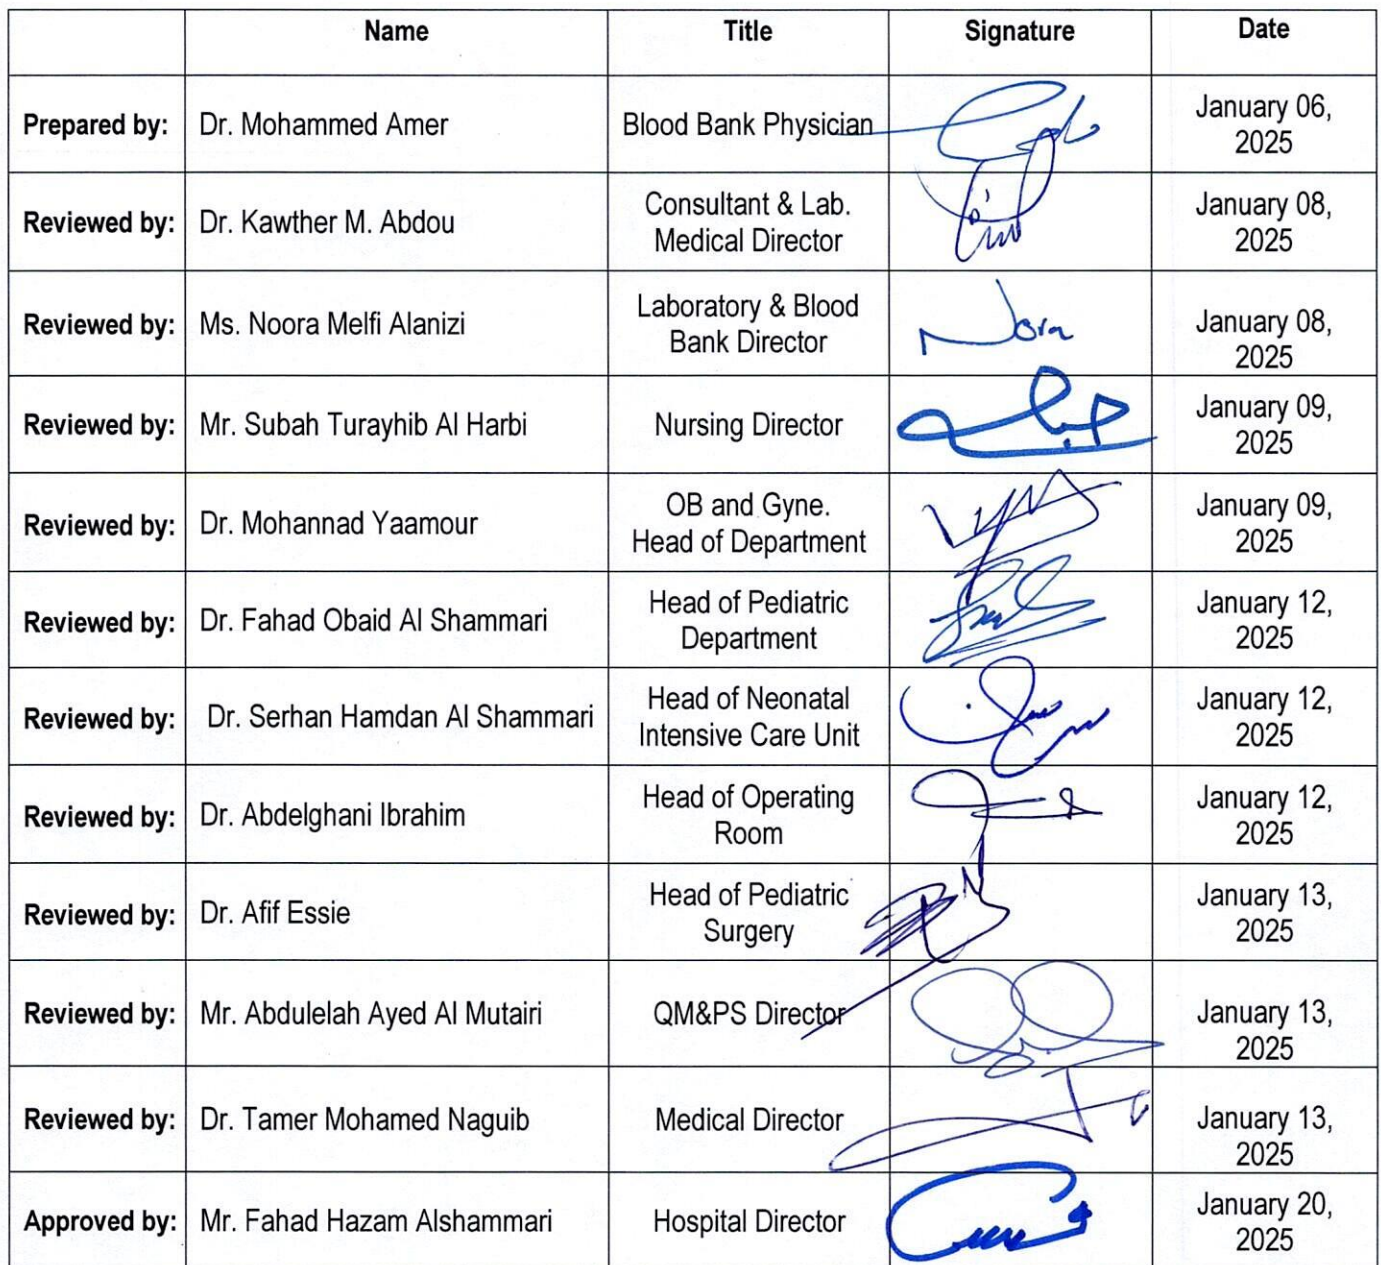 Name Title Signature Date
Prepared by: Dr. Mohammed Amer Blood Bank Physician January 06,
2025
Reviewed by: Dr. Kawther M. Abdou Consultant & Lab.
Medical Director January 08,
2025
Reviewed by: Ms. Noora Melfi Alanizi Laboratory & Blood
Bank Director Nora January 08,
2025
Reviewed by: Mr. Subah Turayhib Al Harbi Nursing Director January 09,
2025
Reviewed by: Dr. Mohannad Yaamour OB and Gyne.
Head of Department January 09,
2025
Reviewed by: Dr. Fahad Obaid Al Shammari Head of Pediatric
Department January 12,
2025
Reviewed by: Dr. Serhan Hamdan Al Shammari Head of Neonatal
Intensive Care Unit January 12,
2025
Reviewed by: Dr. Abdelghani Ibrahim Head of Operating
Room January 12,
2025
Reviewed by: Dr. Afif Essie Head of Pediatric
Surgery January 13,
2025
Reviewed by: Mr. Abdulelah Ayed Al Mutairi QM&PS Director January 13,
2025
Reviewed by: Dr. Tamer Mohamed Naguib Medical Director January 13,
2025
Approved by: Mr. Fahad Hazam Alshammari Hospital Director January 20,
2025